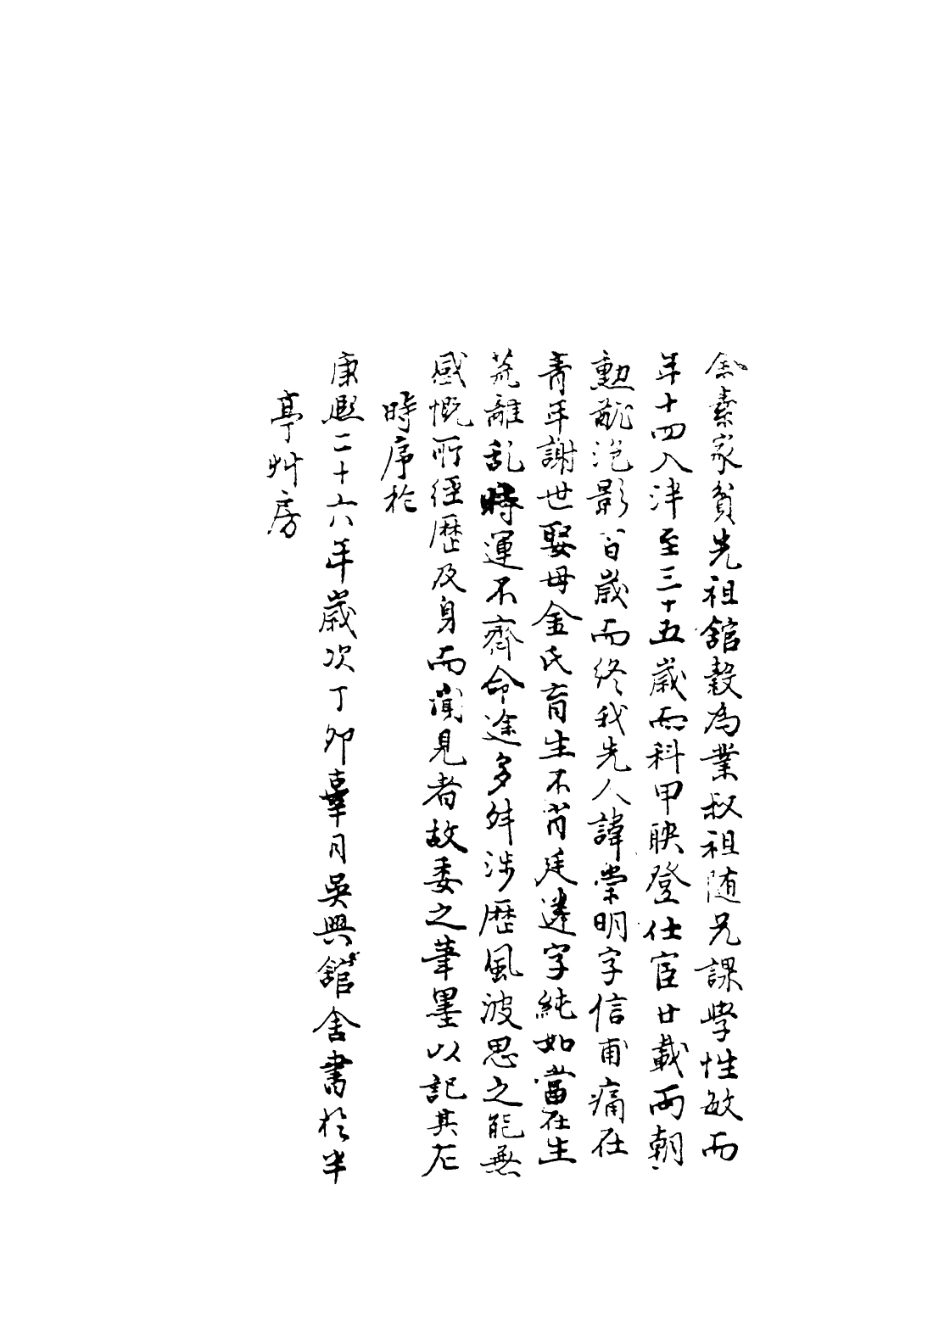 余素家貧先祖舘穀為業叔祖随兄課學性敏而
年十四入泮至三十五歲而科甲聯登仕宦廿載兩朝
勳猷泡影百歲而終我先人諱崇明字信甫痛在
青年謝世娶母金氏育生不肖廷遴字純如當在生
荒離乱時運不齊命途多舛涉歷風波思之能無
感慨所經歷及身而聞見者故委之筆墨以記其
時序於
康熙二十六年歲次丁卯辜月吳興舘舍書於半
亭艸房